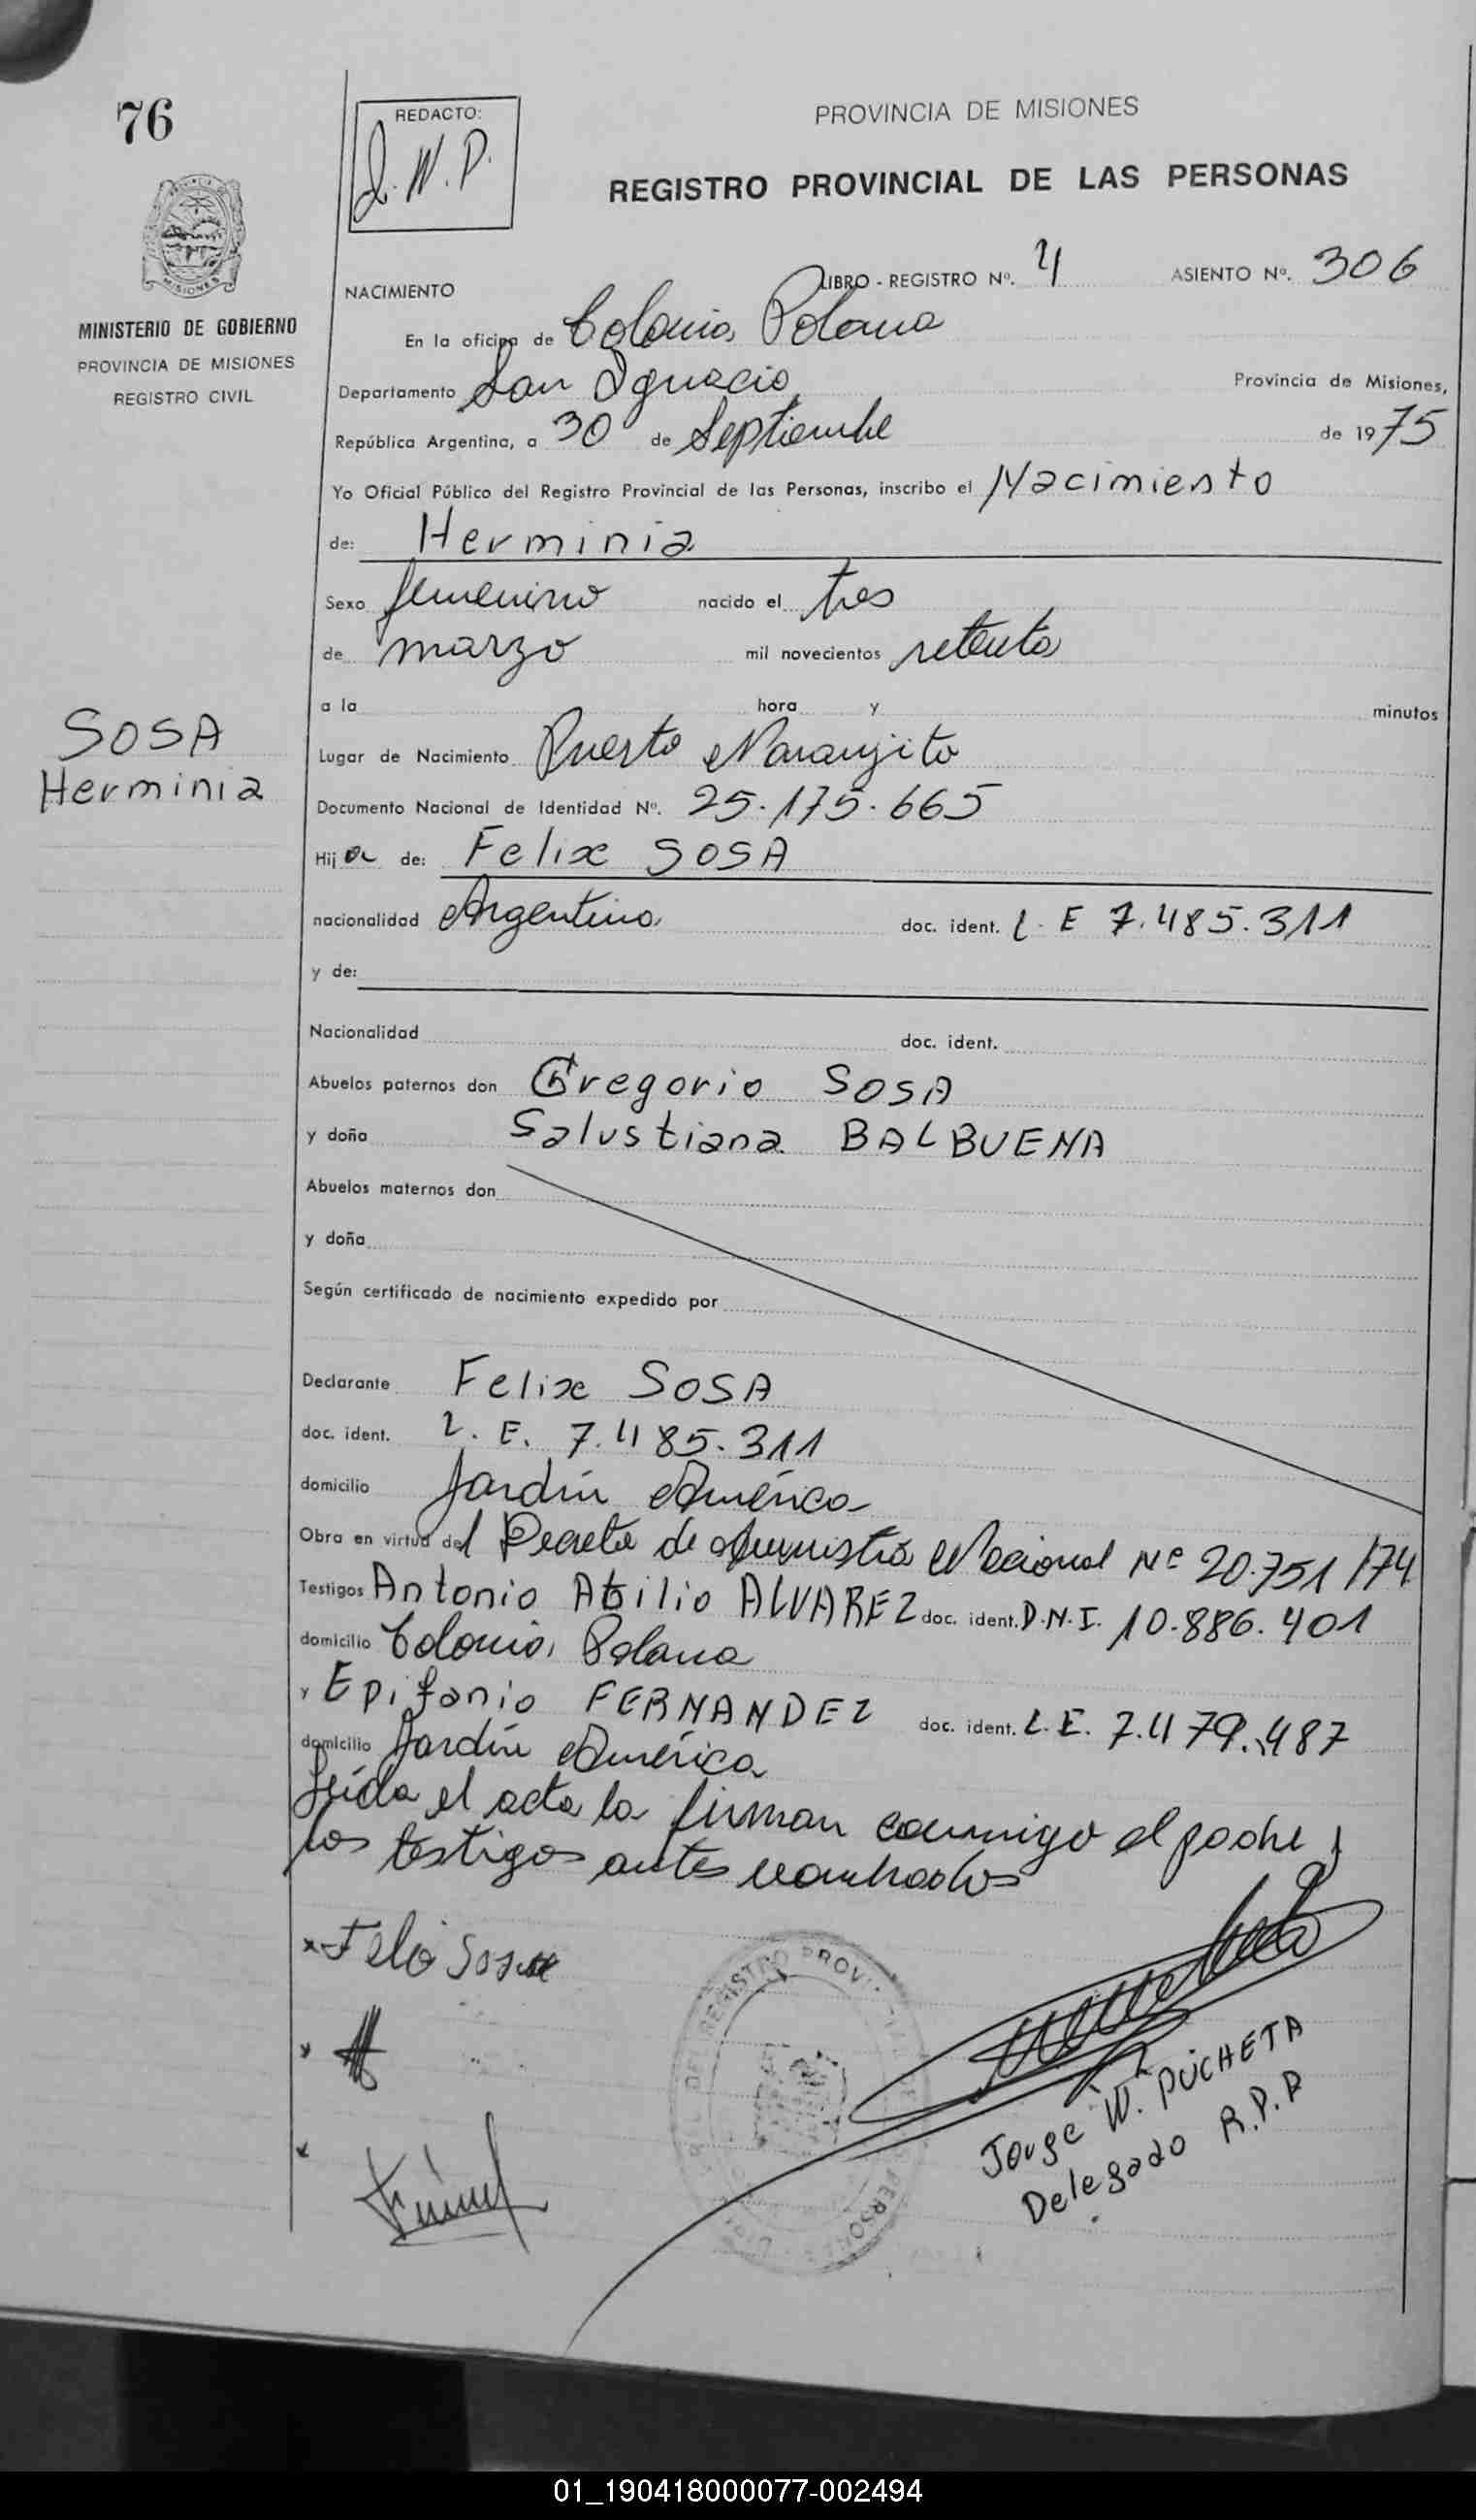 76
REDACTO:
J. W. P.
PROVINCIA DE MISIONES
REGISTRO PROVINCIAL DE LAS PERSONAS
MISIONES
MINISTERIO DE GOBIERNO
PROVINCIA DE MISIONES
REGISTRO CIVIL
NACIMIENTO LIBRO - REGISTRO Nº. 4 ASIENTO Nº. 306
En la oficina de Colonia Polana
Departamento San Ignacio Provincia de Misiones,
República Argentina, a 30 de Septiembre de 1975
Yo Oficial Público del Registro Provincial de las Personas, inscribo el Nacimiento
de: Herminia
Sexo femenino nacido el tres
de marzo mil novecientos setenta
a la hora y minutos
SOSA
Herminia
Lugar de Nacimiento Puerto Naranjito
Documento Nacional de Identidad Nº. 25.175.665
Hija de: Felix SOSA
nacionalidad Argentina doc. ident. L. E 7.485.311
y de:
Nacionalidad doc. ident.
Abuelos paternos don Gregorio SOSA
y doña Salustiana BALBUENA
Abuelos maternos don
y doña
Según certificado de nacimiento expedido por
Declarante Felix SOSA
doc. ident. L. E. 7.485.311
domicilio Jardín América
Obra en virtud del Decreto de Amnistía Nacional Nº 20.751/74
Testigos Antonio Abilio ALVAREZ doc. ident. D.N.I. 10.886.401
domicilio Colonia Polana
y Epifanio FERNANDEZ doc. ident. L.E. 7.479.487
domicilio Jardín América
Leída el acta la firman conmigo el padre y
los testigos antes nombrados
Jorge W. PUCHETA
Delegado R.P.P
01_190418000077-002494